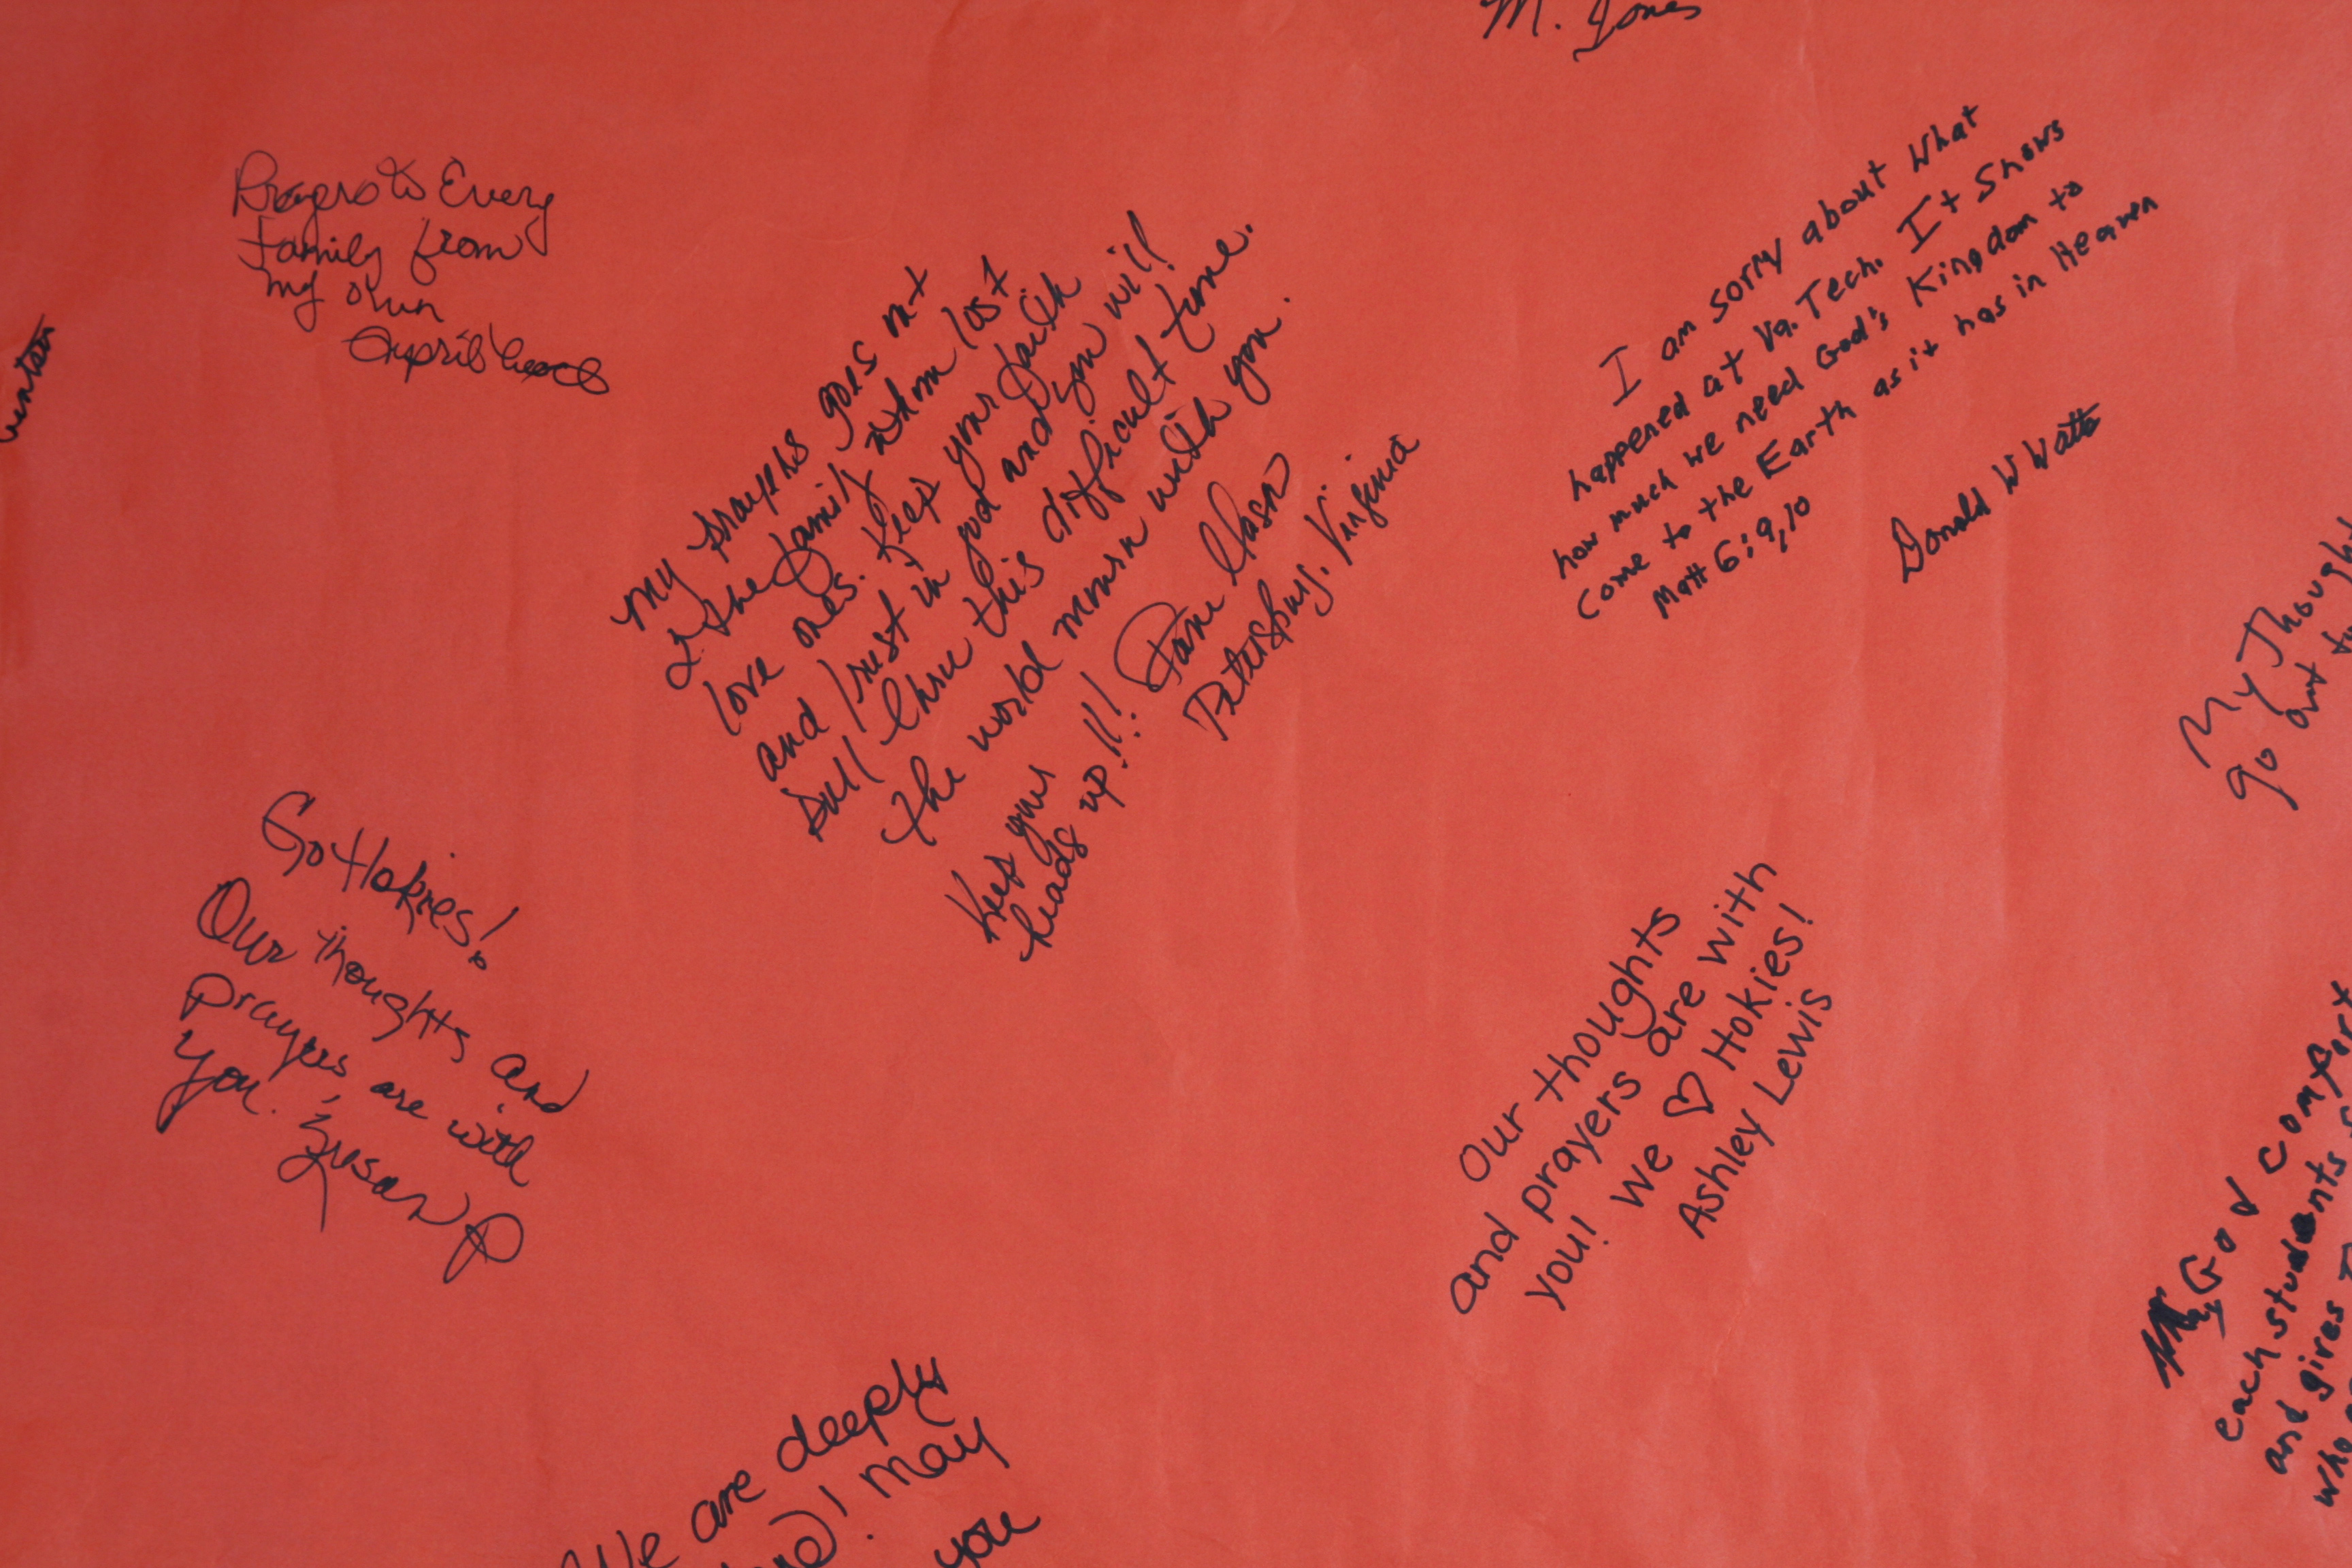 M. Jones
Prayers to Every
Family from
my own
April
my prayers goes out
2 the family whom lost
love ones. Keep your faith
and trust in god and you will
pull thru this difficult time.
the world mourn with you.
Keep your
heads up!!!
Petersburg, Virginia
I am sorry about what
happened at Va. Tech. It Shows
how much we need God's Kingdom to
come to the Earth as it has in Heaven
Matt 6:9,10
Donald W Watts
My Though
go out
Go Hokies!
Our thoughts and
prayers are with
you. Susan P
Our thoughts
and prayers are with
you! We ♡ Hokies!
Ashley Lewis
May God comfort
each students
and gives
who
We are deeply
! May
you